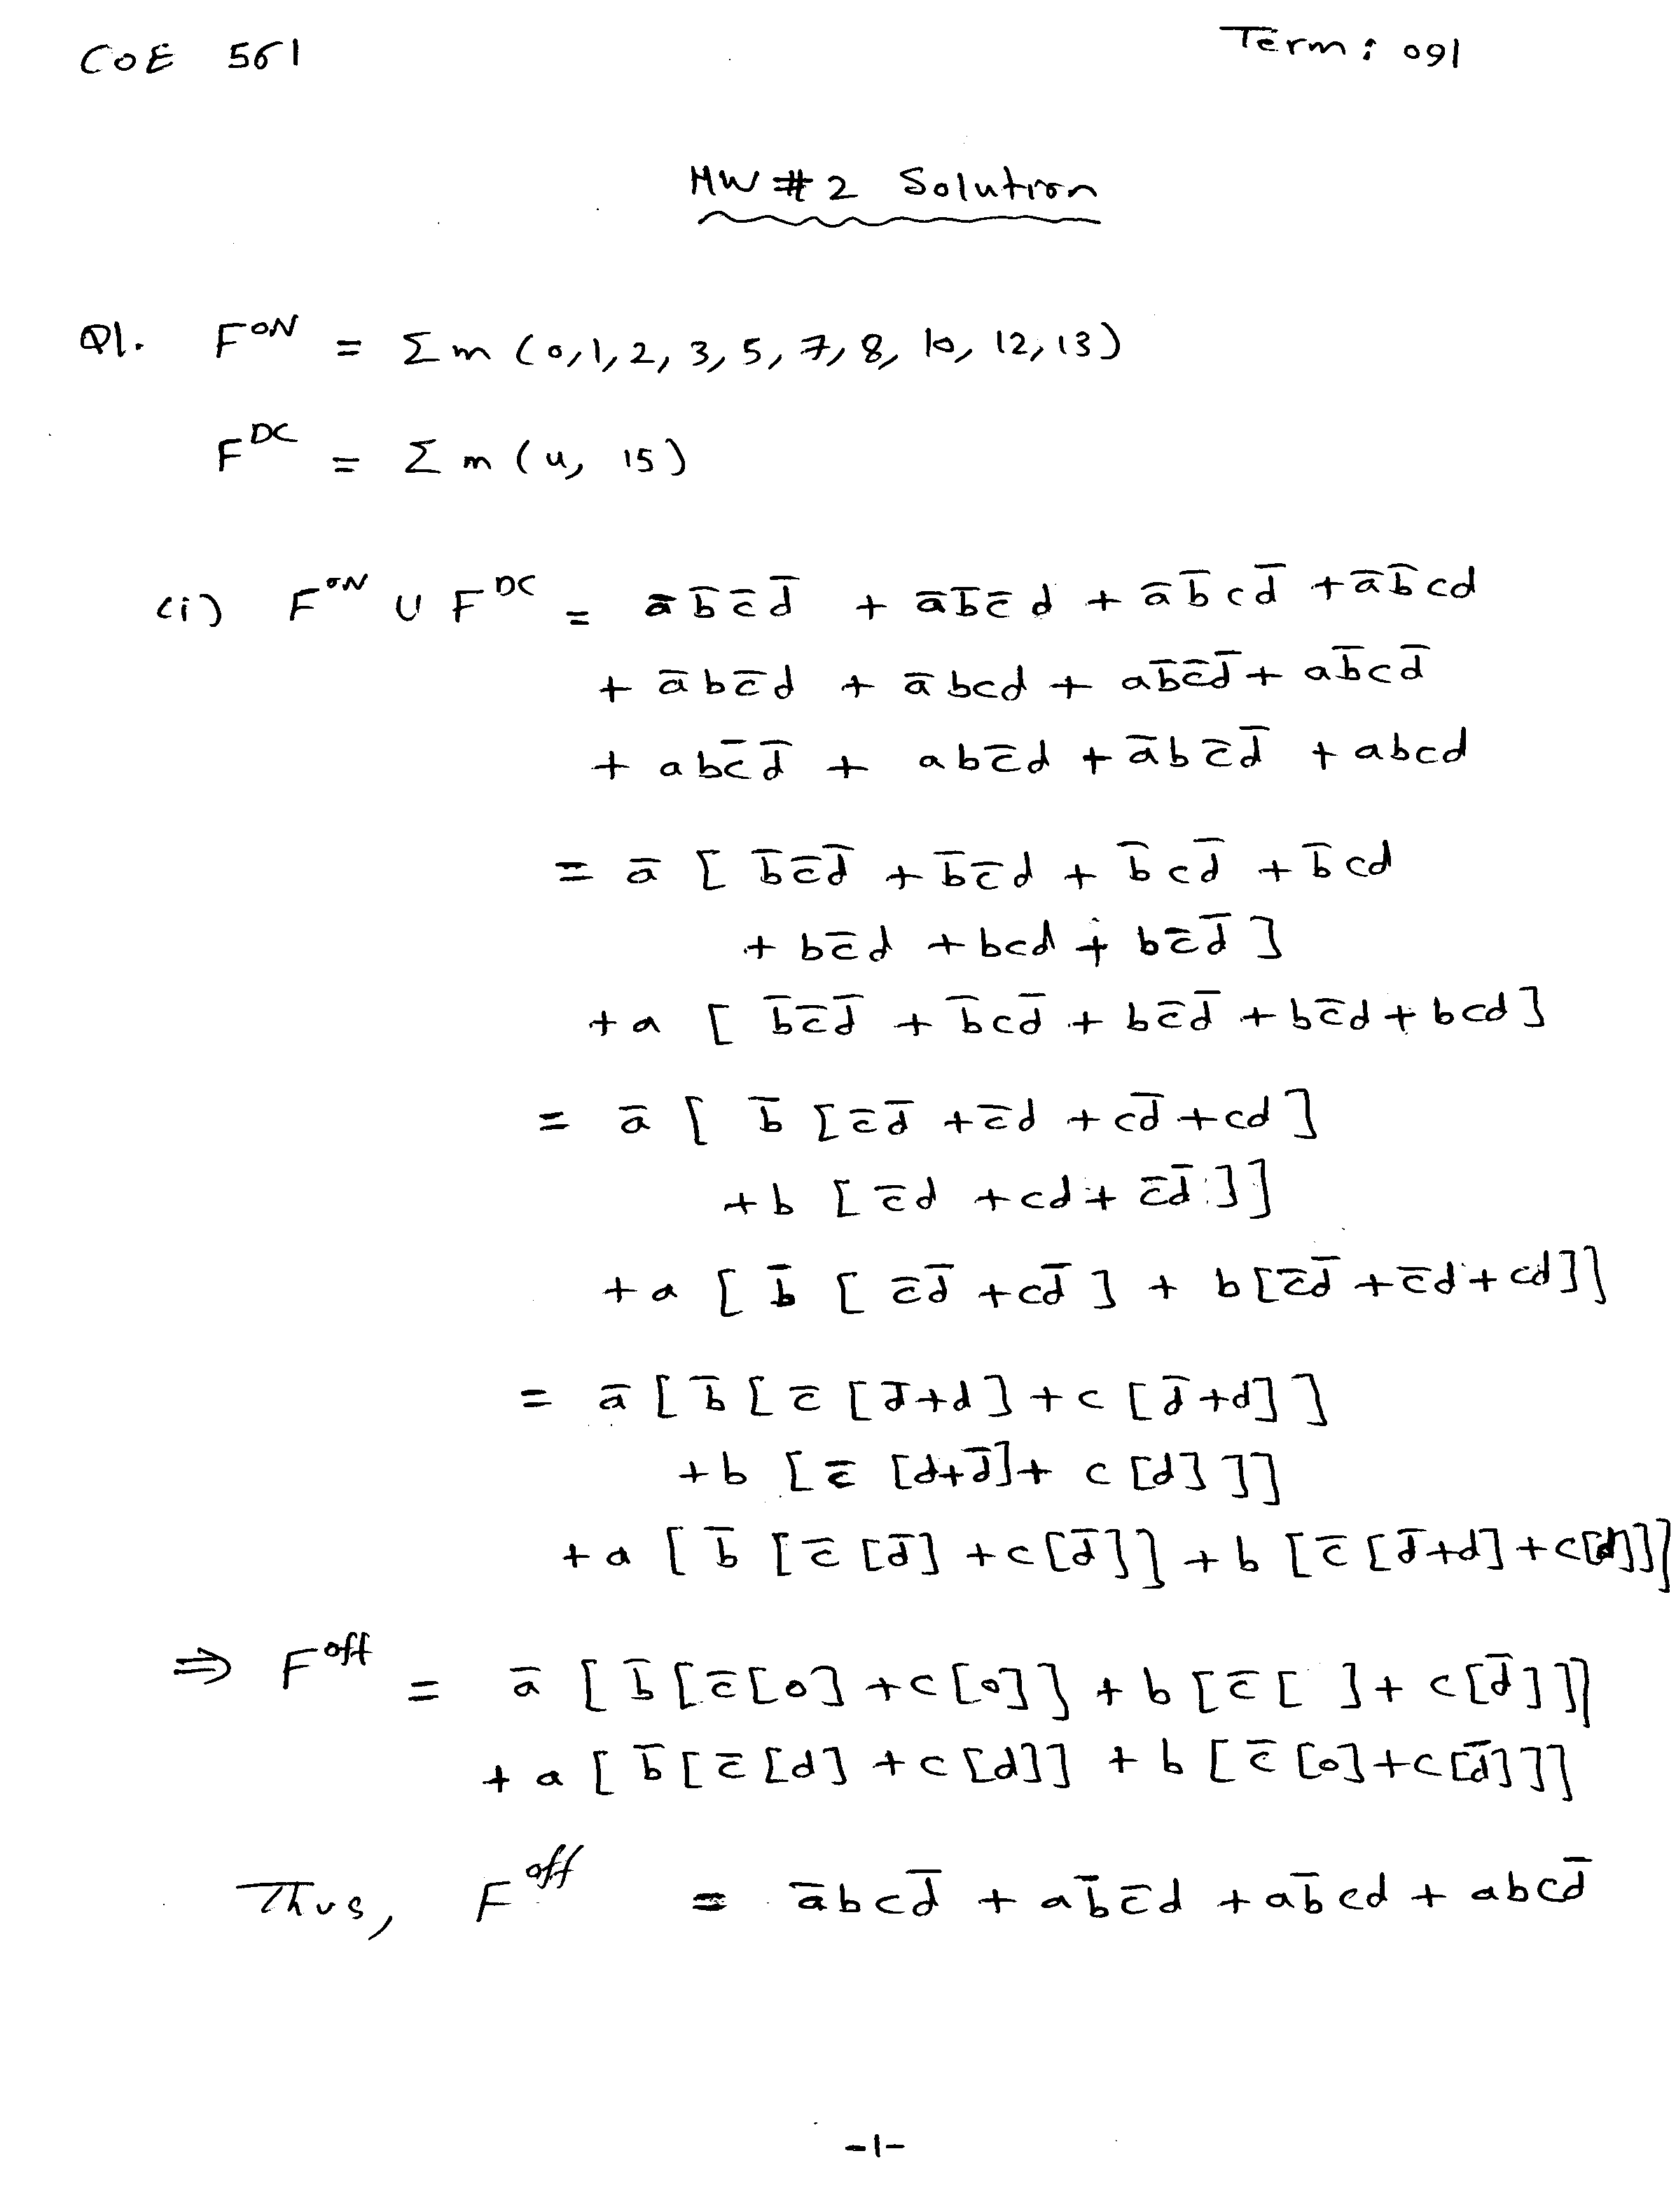 COE 561 Term: 091
HW #2 Solution
Q1. F^ON = Σ m (0,1,2,3,5,7,8,10,12,13)
F^DC = Σ m (4, 15)
(i) F^ON ∪ F^DC = a̅ b̅ c̅ d̅ + a̅ b̅ c̅ d + a̅ b̅ c d̅ + a̅ b̅ c d
+ a̅ b c̅ d + a̅ b c d + a b̅ c̅ d̅ + a b̅ c d̅
+ a b c̅ d̅ + a b c̅ d + a̅ b c̅ d̅ + a b c d
= a̅ [ b̅ c̅ d̅ + b̅ c̅ d + b̅ c d̅ + b̅ c d
+ b c̅ d + b c d + b c̅ d̅ ]
+ a [ b̅ c̅ d̅ + b̅ c d̅ + b c̅ d̅ + b c̅ d + b c d ]
= a̅ [ b̅ [ c̅ d̅ + c̅ d + c d̅ + c d ]
+ b [ c̅ d + c d + c̅ d̅ ] ]
+ a [ b̅ [ c̅ d̅ + c d̅ ] + b [ c̅ d̅ + c̅ d + c d ] ]
= a̅ [ b̅ [ c̅ [ d̅ + d ] + c [ d̅ + d ] ]
+ b [ c̅ [ d + d̅ ] + c [ d ] ] ]
+ a [ b̅ [ c̅ [ d̅ ] + c [ d̅ ] ] + b [ c̅ [ d̅ + d ] + c [ d ] ] ]
⇒ F^off = a̅ [ b̅ [ c̅ [ 0 ] + c [ 0 ] ] + b [ c̅ [ ] + c [ d̅ ] ] ]
+ a [ b̅ [ c̅ [ d ] + c [ d ] ] + b [ c̅ [ 0 ] + c [ d̅ ] ] ]
Thus, F^off = a̅ b c d̅ + a b̅ c̅ d + a b̅ c d + a b c d̅
-1-